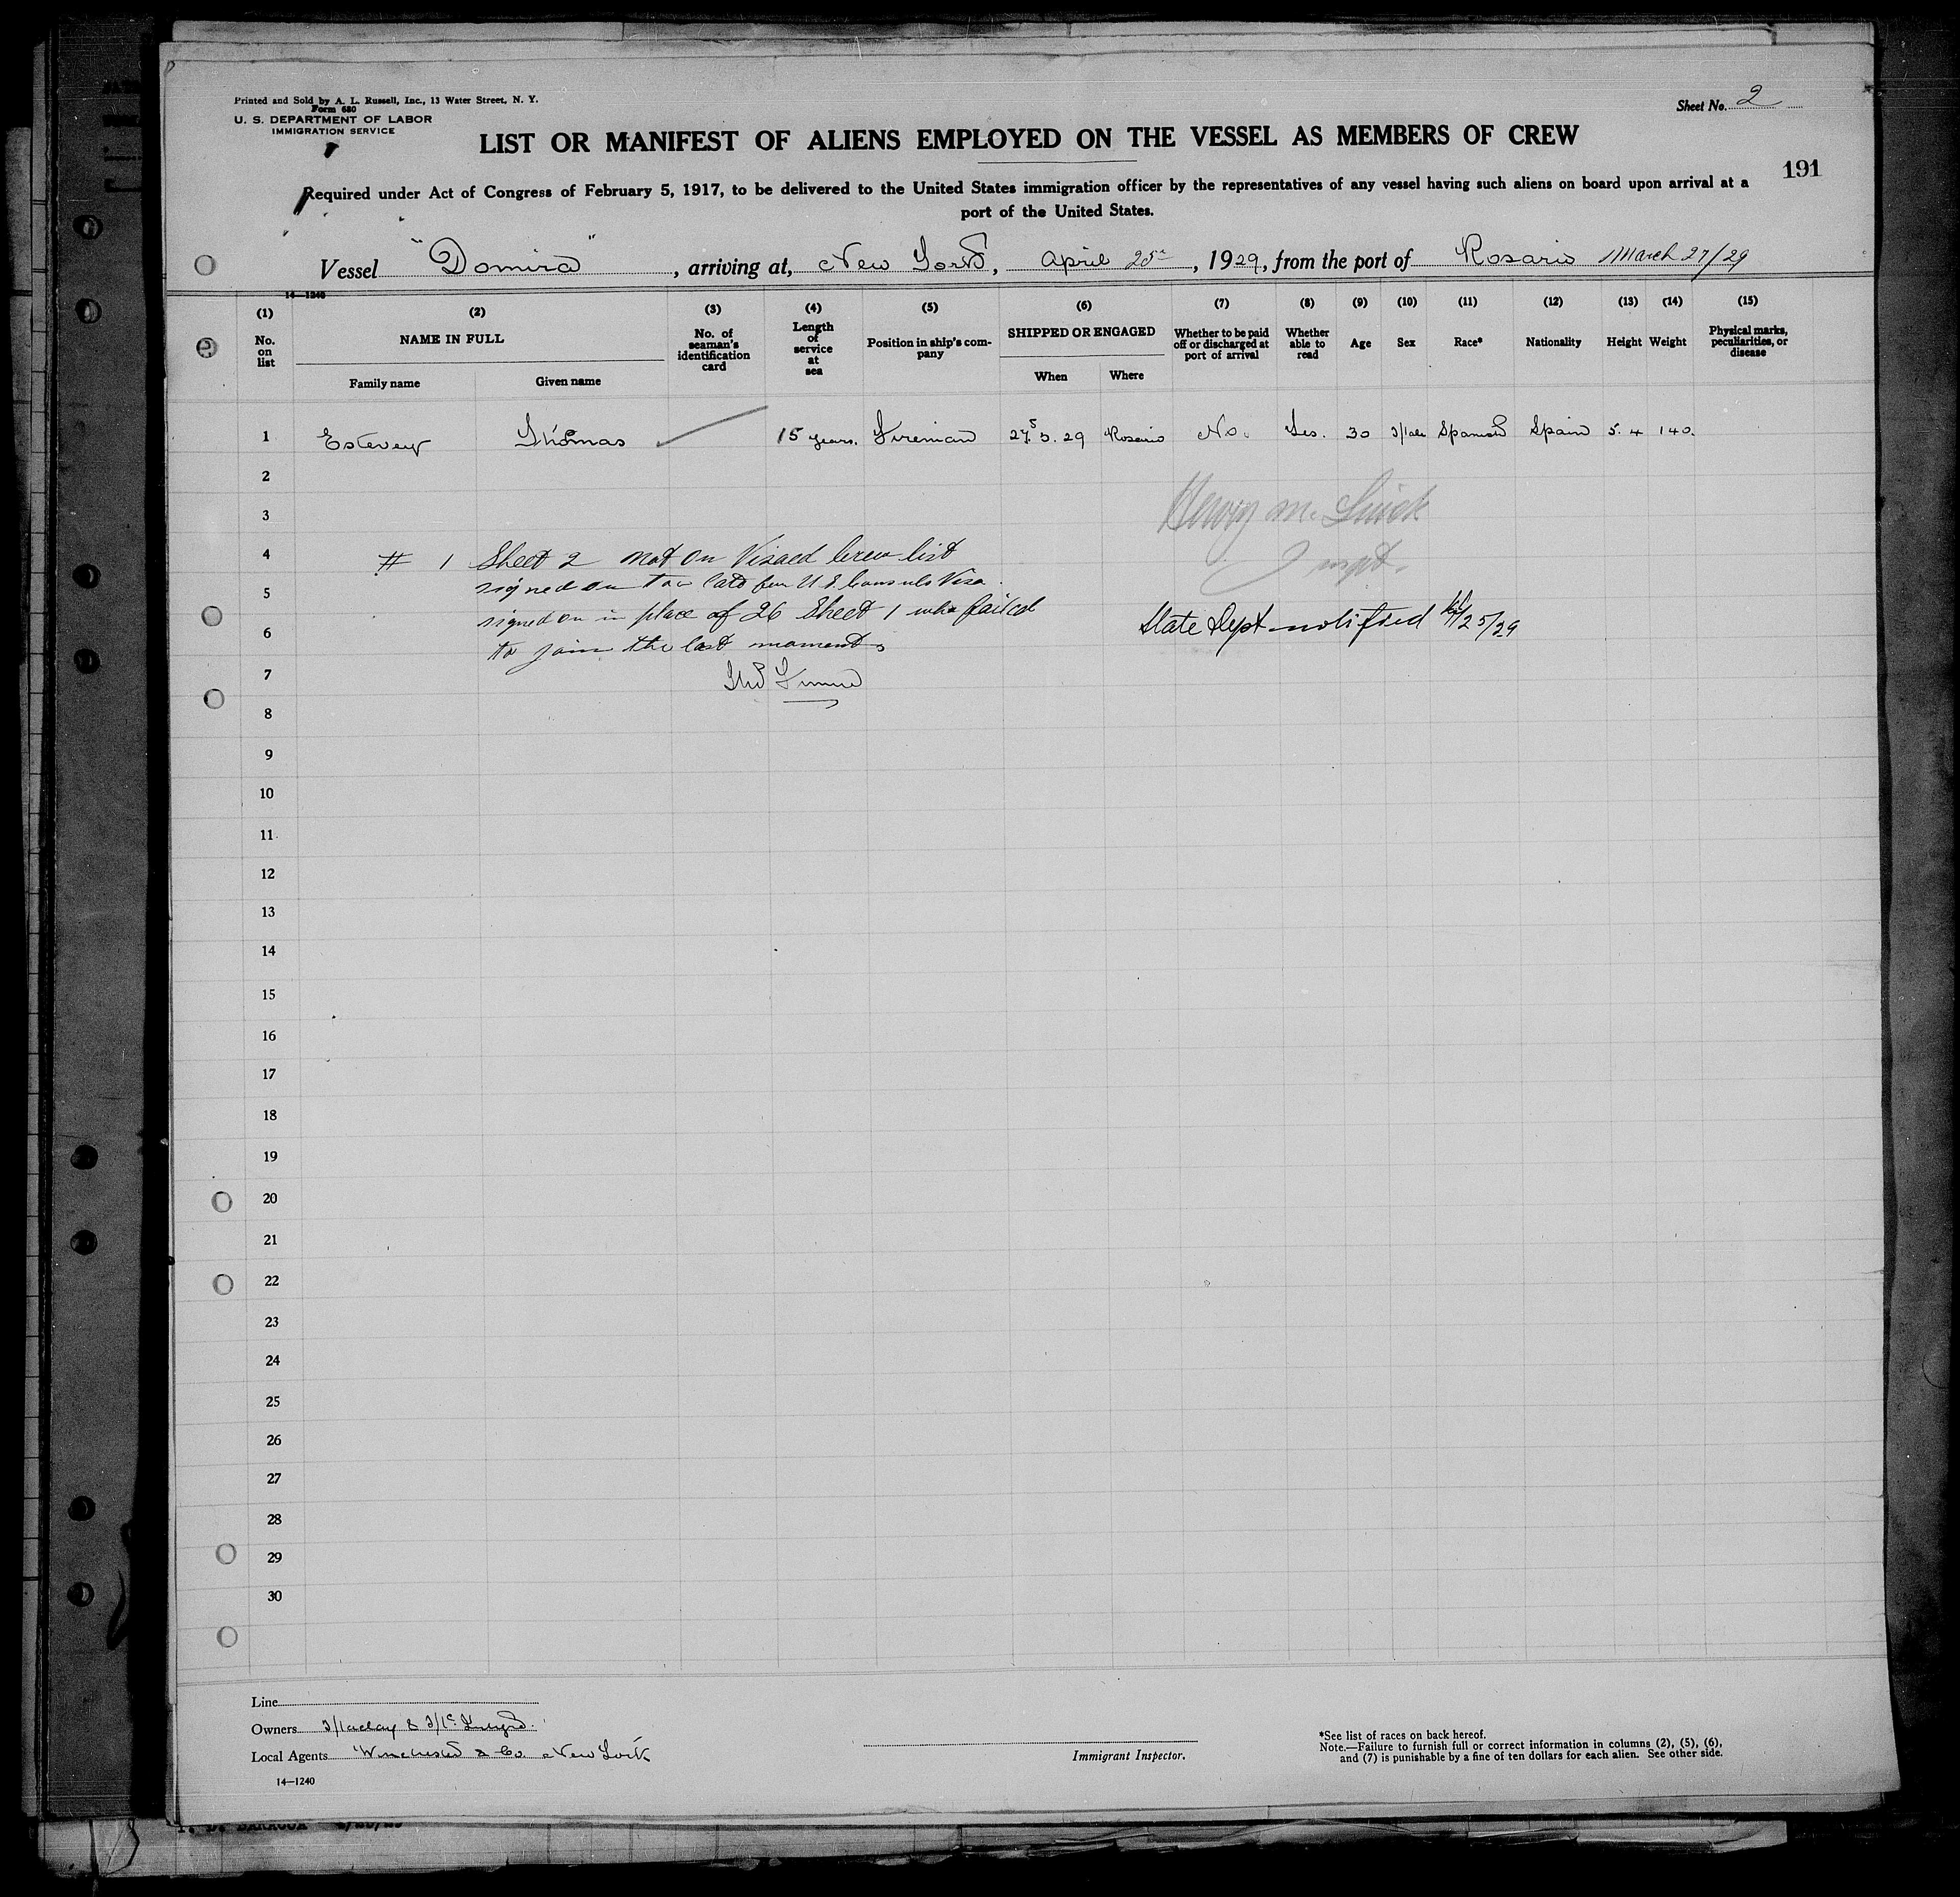 Printed and Sold by A. L. Russell, Inc., 13 Water Street, N. Y.
Form 680
U. S. DEPARTMENT OF LABOR
IMMIGRATION SERVICE
Sheet No. 2
LIST OR MANIFEST OF ALIENS EMPLOYED ON THE VESSEL AS MEMBERS OF CREW
191
Required under Act of Congress of February 5, 1917, to be delivered to the United States immigration officer by the representatives of any vessel having such aliens on board upon arrival at a
port of the United States.
Vessel "Domira", arriving at, New York, April 25th, 1929, from the port of Rosario March 27/29
14—1240
(1) (2) (3) (4) (5) (6) (7) (8) (9) (10) (11) (12) (13) (14) (15)
No. on list
NAME IN FULL
Family name
Given name
No. of seaman's identification card
Length of service at sea
Position in ship's company
SHIPPED OR ENGAGED
When
Where
Whether to be paid off or discharged at port of arrival
Whether able to read
Age
Sex
Race*
Nationality
Height
Weight
Physical marks, peculiarities, or disease
1 Estevez Thomas 15 years. Fireman 27.3.29 Rosario No. Yes. 30 Male Spanish Spain 5.4 140.
2
3
Henry M.
4
# 1 Sheet 2 not on Visaed Crew list
Inspt.
5
signed on too late for U S Consuls Visa.
signed on in place of 26 Sheet 1 who failed
State Dept notified 4/25/29
6
to join the last moment
7
8
9
10
11
12
13
14
15
16
17
18
19
20
21
22
23
24
25
26
27
28
29
30
Line
Owners Maclay & McIntyre.
Local Agents Winchester & Co. New York
14—1240
Immigrant Inspector.
*See list of races on back hereof.
Note.—Failure to furnish full or correct information in columns (2), (5), (6),
and (7) is punishable by a fine of ten dollars for each alien. See other side.